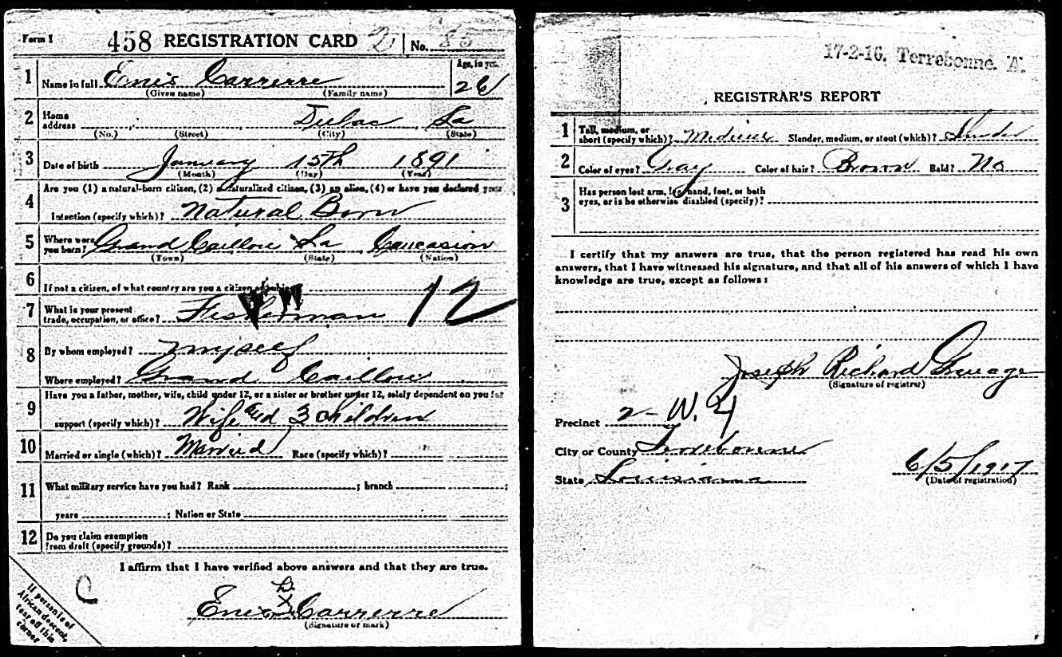 Form 1 458 REGISTRATION CARD 2 No. 85
1 Name in full Enis Carrerre Age, in yrs. 26
(Given name) (Family name)
2 Home address Dulac La
(No.) (Street) (City) (State)
3 Date of birth January 15th 1891
(Month) (Day) (Year)
Are you (1) a natural-born citizen, (2) a naturalized citizen, (3) an alien, (4) or have you declared your
4 intention (specify which)? Natural Born
5 Where were you born? Grand Caillou La Caucasion
(Town) (State) (Nation)
6 If not a citizen, of what country are you a citizen or subject?
7 What is your present trade, occupation, or office? Fisherman 12
8 By whom employed? myself
Where employed? Grand Caillou
9 Have you a father, mother, wife, child under 12, or a sister or brother under 12, solely dependent on you for
support (specify which)? Wife and 3 children
10 Married or single (which)? Married Race (specify which)?
11 What military service have you had? Rank ; branch ;
years ; Nation or State
12 Do you claim exemption from draft (specify grounds)?
I affirm that I have verified above answers and that they are true.
C
If person is of African descent, tear off this corner
Enis X Carrerre
(Signature or mark)
17-2-16. Terrebonne. A.
REGISTRAR'S REPORT
1 Tall, medium, or short (specify which)? Medium Slender, medium, or stout (which)? Slender
2 Color of eyes? Gray Color of hair? Brown Bald? No
3 Has person lost arm, leg, hand, foot, or both eyes, or is he otherwise disabled (specify)?
I certify that my answers are true, that the person registered has read his own
answers, that I have witnessed his signature, and that all of his answers of which I have
knowledge are true, except as follows:
Joseph Richard
(Signature of registrar)
Precinct 2 - W. 4
City or County Terrebonne
State Louisiana
6/5/1917
(Date of registration)